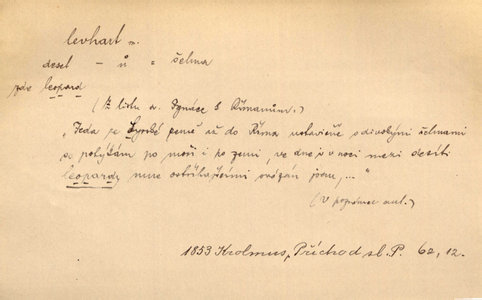 levhart m.
deset – ů = šelma
pův leopard
(Z listu sv. Ignáce k Římanům.)
„Jeda ze Syrské země až do Říma ustavičně s divokými šelmami
se potýkám po moři i po zemi, ve dne i v noci mezi desíti
leopardy mne ostříhajícími svázán jsem, ..."
(V poznámce aut.)
1853 Krolmus, Příchod sl. P. 62, 12.